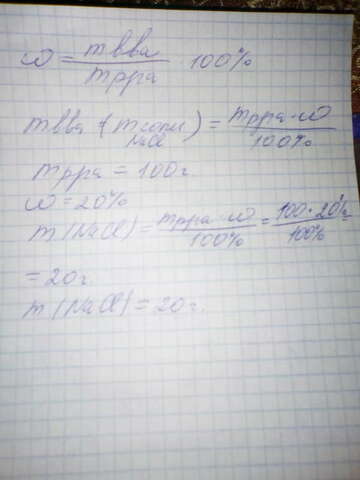 ω = mвва / mрра 100%
mвва (mсоли NaCl) = mрра · ω / 100%
mрра = 100г
ω = 20%
m(NaCl) = mрра · ω / 100% = 100 · 20% / 100%
= 20г
m(NaCl) = 20г.